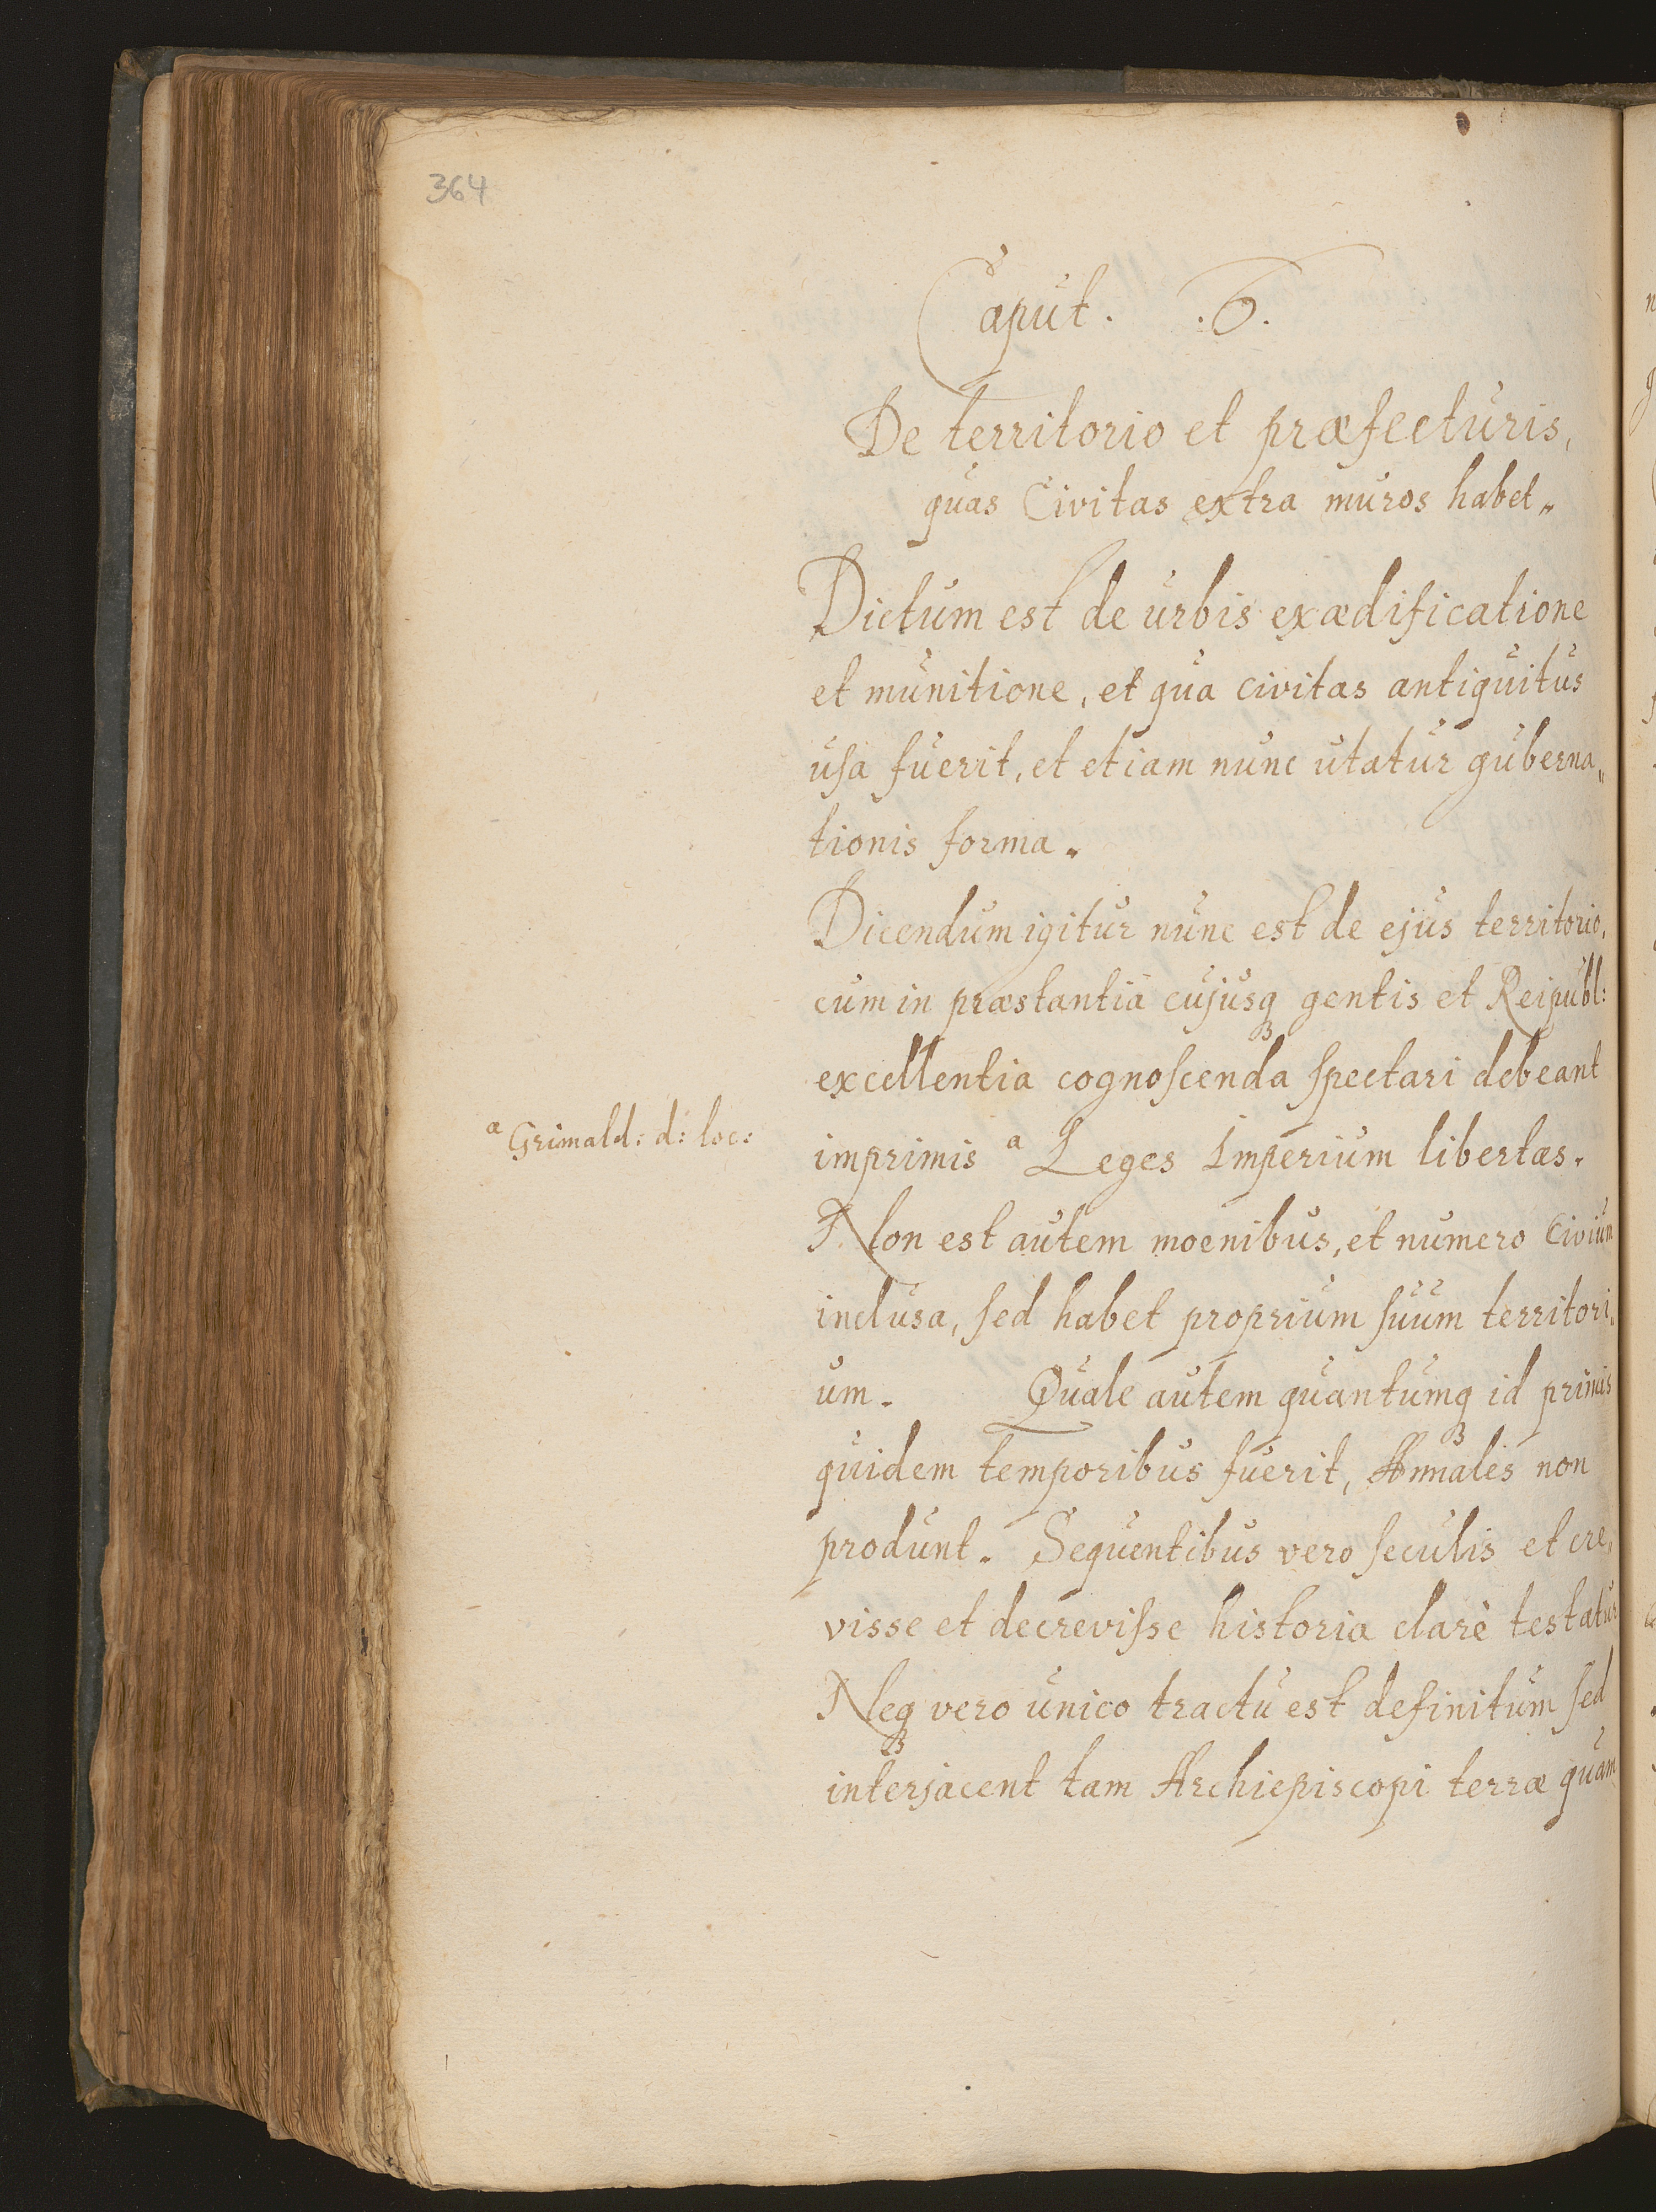 364
Caput. .6.
De territorio et præfecturis,
quas Civitas extra muros habet„
Dictum est de urbis exædificatione
et munitione, et qua civitas antiquitus
uſa fuerit, et etiam nunc utatur guberna„
tionis forma.
Dicendum igitur nunc est de ejus territorio,
cum in præstantia cujusqꝫ gentis et Reipubl:
excellentia cognoſcenda ſpectari debeant
a Grimald: d: loc:
imprimis a Leges Imperium libertas.
Non est autem moenibus, et numero Civium
inclusa, ſed habet proprium ſuum territori„
um. Quale autem quantumqꝫ id primis
quidem temporibus fuerit, Annales non
produnt. Sequentibus vero ſeculis et cre„
visse et decreviſse historia clarè testatur
Neqꝫ vero unico tractu est definitum ſed
interjacent tam Archiepiscopi terræ quam